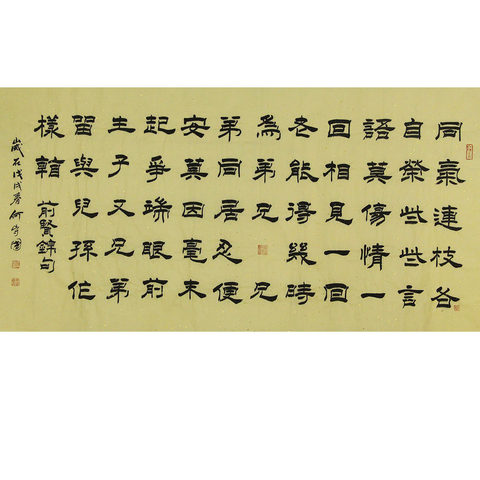 同氣連枝各
自榮些些言
語莫傷情一
回相見一回
老能得幾時
為弟兄兄
弟同居忍便
安莫因毫末
起爭端眼前
生子又兄弟
留與兒孫作
樣看 前賢錦句
歲在戊戌